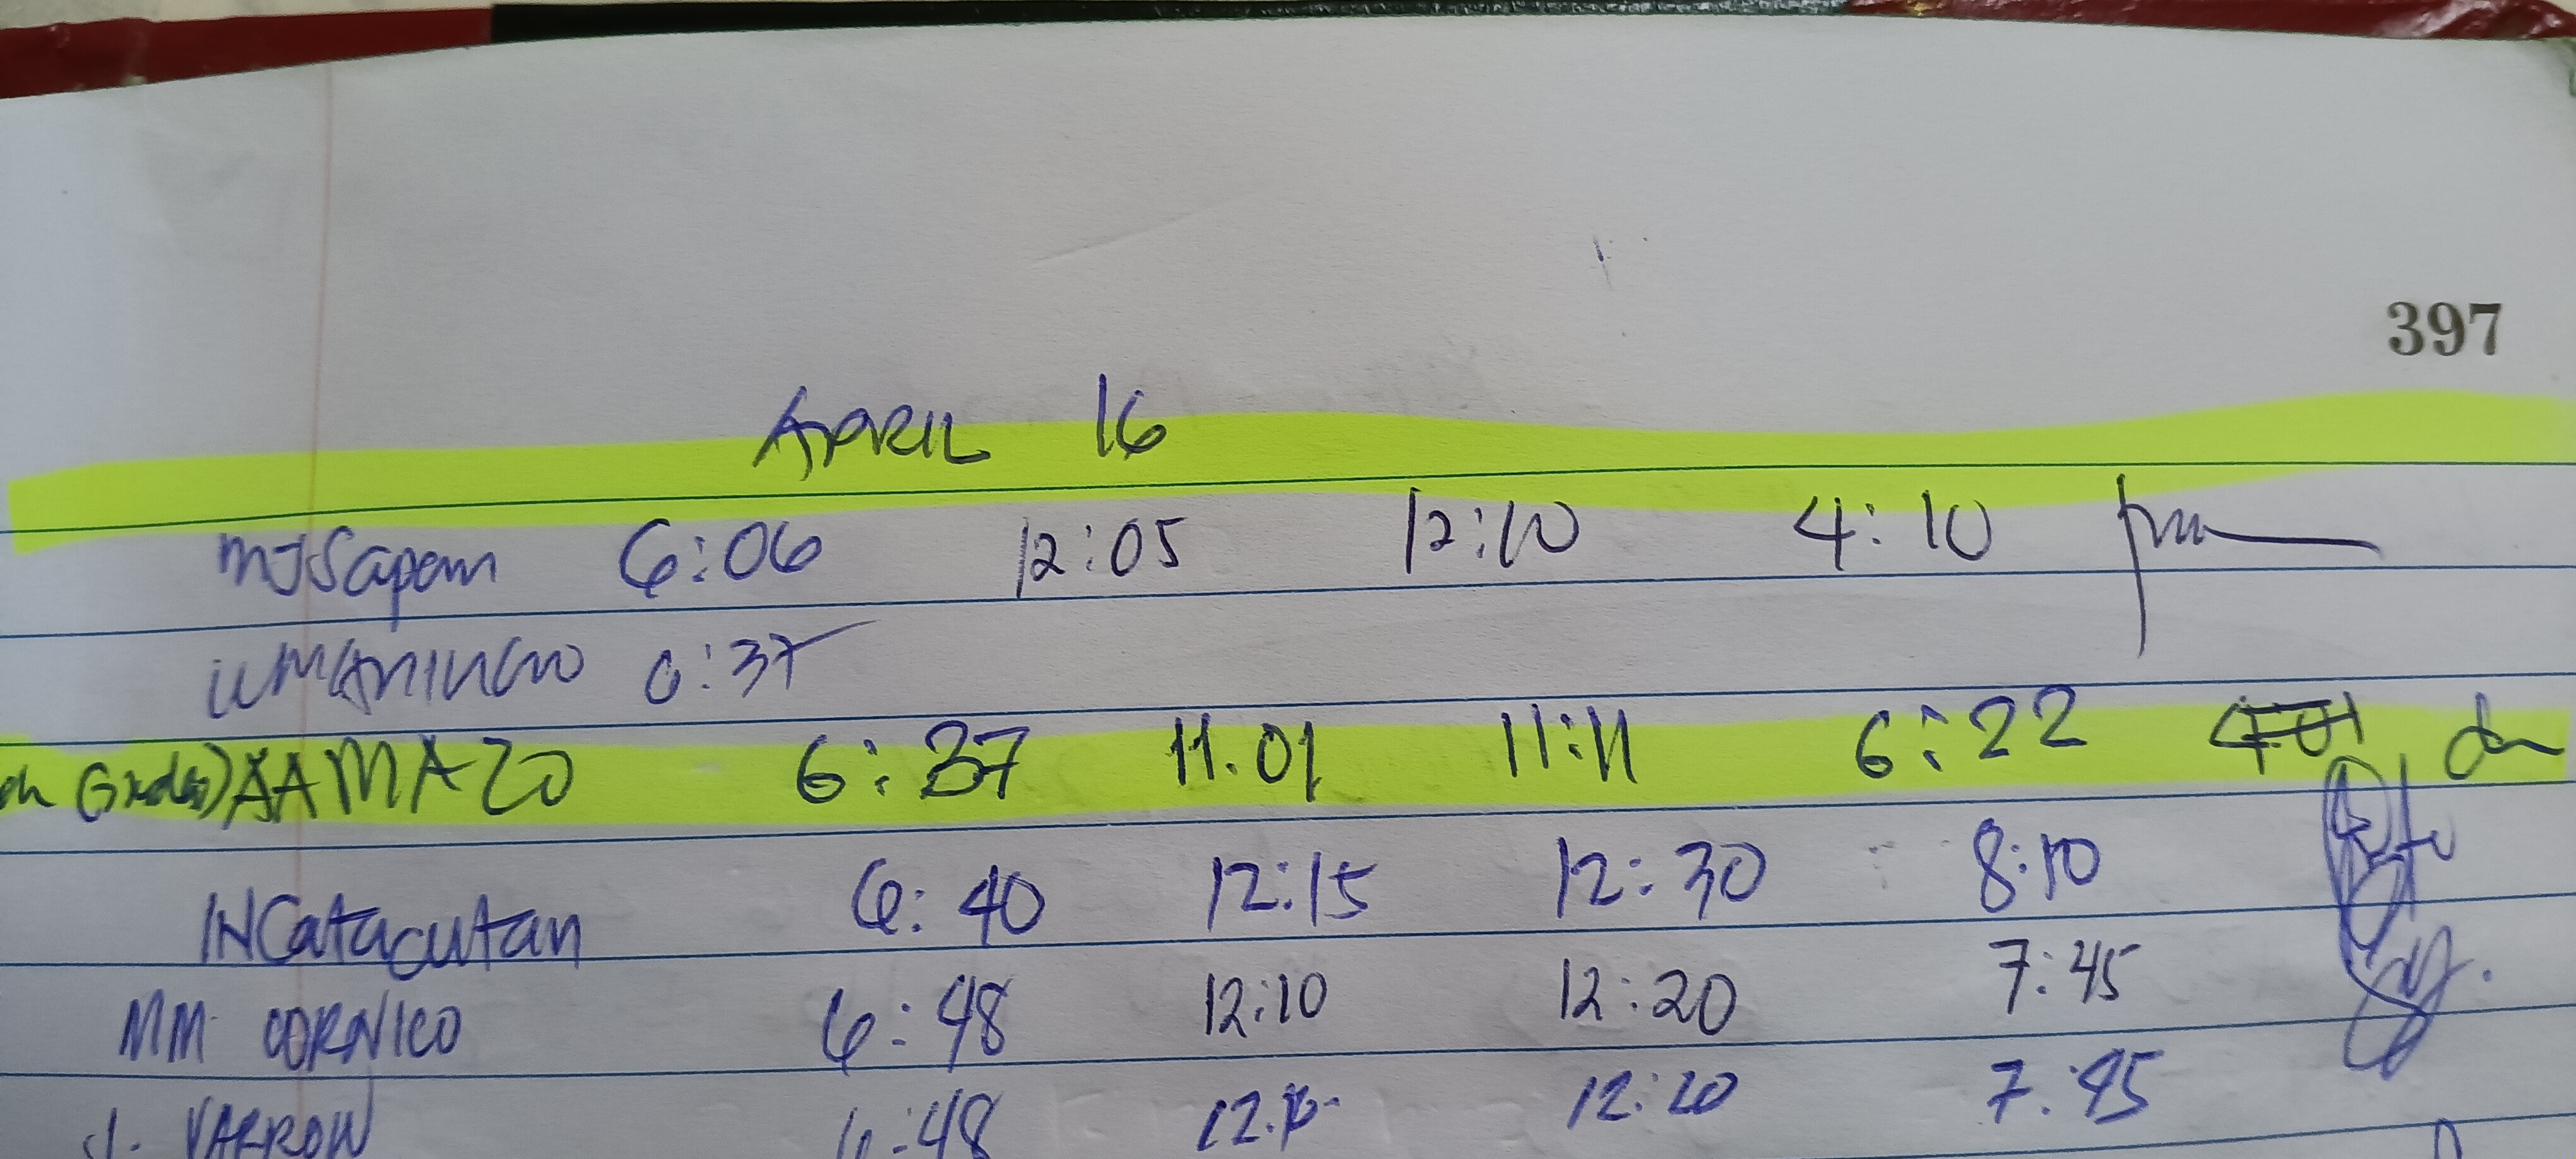 397
APRIL 16
MJSapem 6:06 12:05 12:10 4:10
6:37
AAMAZO 6:37 11.01 11:11 6:22
INCatacutan 6:40 12:15 12:30 8:10
MM CORNICO 6:48 12:10 12:20 7:45
J. YARROW 6:48 12:20 7:45